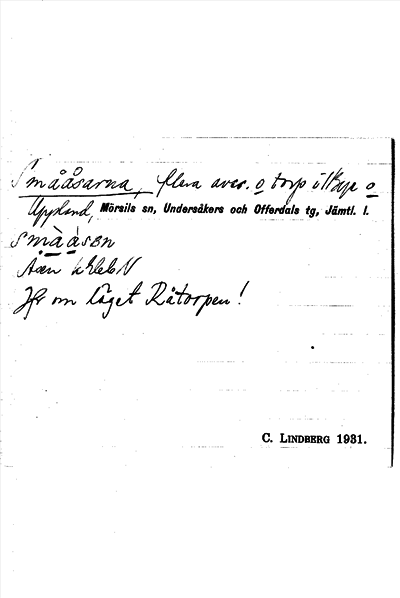 Smååsarna, flera avsr. o torp i
Uppland, Mörsils sn, Undersåkers och Offerdals tg, Jämtl. l.
småàsɛn
Åsen
Jfr om läget Råtorpen!
C. LINDBERG 1931.